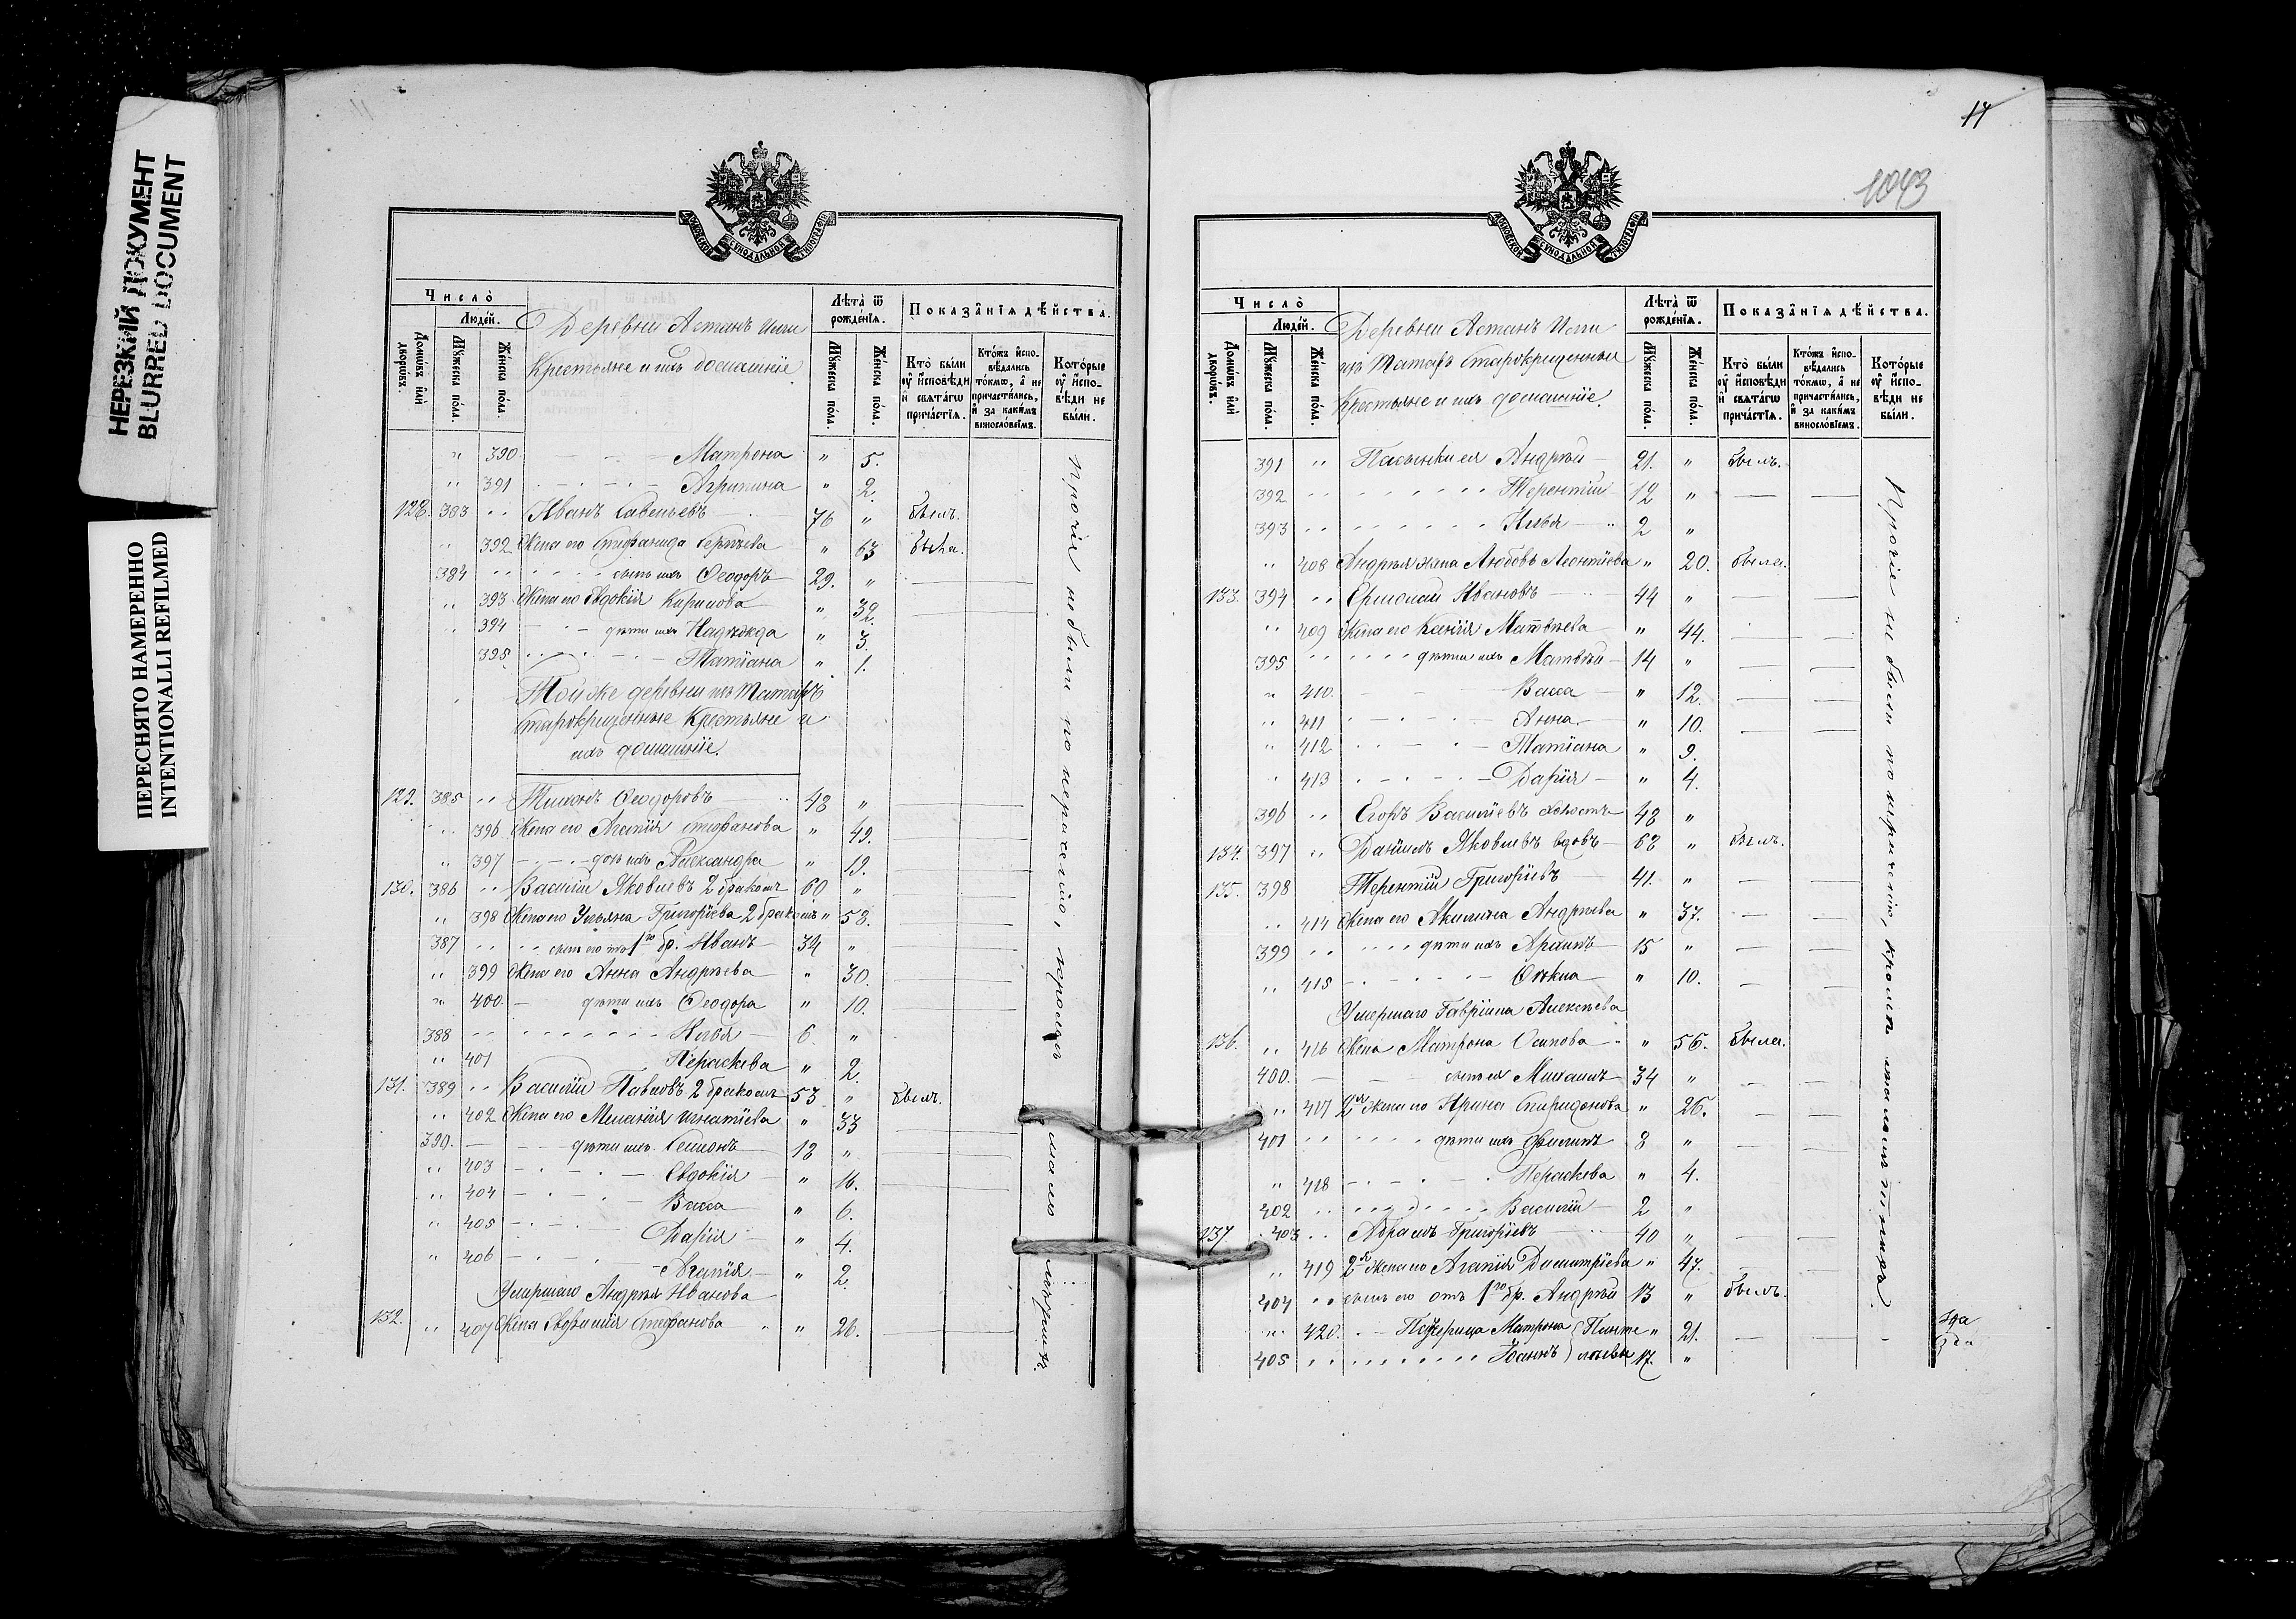 НЕРЕЗКИЙ ДОКУМЕНТ
BLURRED DOCUMENT
ПЕРЕСНЯТО НАМЕРЕННО
INTENTIONALLI REFILMED
МОСКОВСКОЙ СѴНОДАЛЬНОЙ ТИПОГРАФІИ
Число̀
Людéй.
Домѡ́въ и҆лѝ дворѡ́въ.
Мꙋ́жеска по́ла.
Же́нска по́ла.
Деревни Астанъ Илги
Крестьяне и ихъ домашніе.
Лѣта̀ ѿ рожде́нїѧ.
Мꙋ́жеска по́ла.
Же́нска по́ла.
Показа̑нїѧ дѣ́йства.
Кто̀ бы́ли ᲂу҆ и҆сповѣ́ди и҆ свѧта́гѡ прича́стїѧ.
Кто́жъ и҆сповѣ́дались то́кмѡ, а҆ не причасти́лись, и҆ за каки́мъ винносло́вїемъ.
Кото́рые ᲂу҆ и҆сповѣ́ди не бы́ли.
" 390 Матрона " 5.
" 391 Агрипина " 2.
128. 383 " Иванъ Савельевъ 76 " былъ.
" 392 Жена его Стефанида Сергѣева " 63 была.
384 " сынъ ихъ Ѳеодоръ 29. "
" 393 Жена его Евдокія Кирилова " 32.
" 394 дѣти ихъ Надежда " 3.
395 Татіана " 1.
Той же деревни изъ Татаръ
старокрещенные Крестьяне и
ихъ домашніе.
129. 385 " Тихонъ Ѳеодоровъ 48 "
" 396 Жена его Агапія Стефанова " 49.
" 397 дочь ихъ Александра " 19.
130. 386 " Василій Яковлевъ 2 бракомъ 60 "
" 398 Жена его Ульяна Григоріева 2 бракомъ " 58.
387 " сынъ его отъ 1го бр. Иванъ 34 "
" 399 Жена его Анна Андреева " 30.
" 400. дѣти ихъ Ѳеодора " 10.
388 " Илья 6. "
" 401 Пераскева " 2.
131. 389 " Василій Павловъ 2 бракомъ 53 " былъ.
" 402 Жена его Меланія Игнатіева " 33
390. дѣти ихъ Семіонъ 18 "
" 403 Евдокія " 16.
" 404 Васса " 6.
" 405 Дарія " 4.
" 406 Агапія " 2.
Умершаго Андрея Иванова
132. " 407 Жена Стефанова " 26.
Прочіе не были по нераченію, кромѣ малолѣтнихъ.
17
1043
МОСКОВСКОЙ СѴНОДАЛЬНОЙ ТИПОГРАФІИ
Число̀
Людéй.
Домѡ́въ и҆лѝ дворѡ́въ.
Мꙋ́жеска по́ла.
Же́нска по́ла.
Деревни Астанъ Илги
изъ Татаръ Старокрещенные
Крестьяне и ихъ домашніе.
Лѣта̀ ѿ рожде́нїѧ.
Мꙋ́жеска по́ла.
Же́нска по́ла.
Показа̑нїѧ дѣ́йства.
Кто̀ бы́ли ᲂу҆ и҆сповѣ́ди и҆ свѧта́гѡ прича́стїѧ.
Кто́жъ и҆сповѣ́дались то́кмѡ, а҆ не причасти́лись, и҆ за каки́мъ винносло́вїемъ.
Кото́рые ᲂу҆ и҆сповѣ́ди не бы́ли.
391 " Пасынки ея Андрей 21. " былъ.
392 " Терентій 12 "
393 " Илья 2 "
" 408 Андрея жена Любовь Леонтіева " 20. была.
133. 394 " Ермолай Ивановъ 44 "
" 409 Жена его Ксенія Матвеева " 44.
395 " дѣти ихъ Матвѣй 14 "
" 410. Васса " 12.
" 411 Анна " 10.
" 412 Татіана " 9.
" 413 Дарія " 4.
396 " Егоръ Василіевъ холостъ 48 "
134. 397 " Даніилъ Яковлевъ вдовъ 68 " былъ.
135. 398 Терентій Григоріевъ 41. "
" 414 Жена его Акилина Андреева " 37.
399 " дѣти ихъ 15 "
" 415 Ѳекла " 10.
Умершаго Гавріила Алексѣева
136. " 416 Жена Матрона Осипова " 56. была.
400. сынъ ея Михаилъ 34 "
" 417 2я жена его Ирина Спиридонова " 26.
401 " дѣти ихъ Филипъ 8 "
" 418 Пераскева " 4.
402 " Василій 2 "
137 403 " Абрамъ Григоріевъ 40 "
" 419 2я жена его Агапія Димитріева " 47.
404 " сынъ его отъ 1го бр. Андрей 13 " былъ.
" 420. Падчерица Матрона (Панте " 21.
405 " Іоаннъ ) леевы 17. "
Прочіе не были по нераченію, кромѣ малолѣтнихъ.